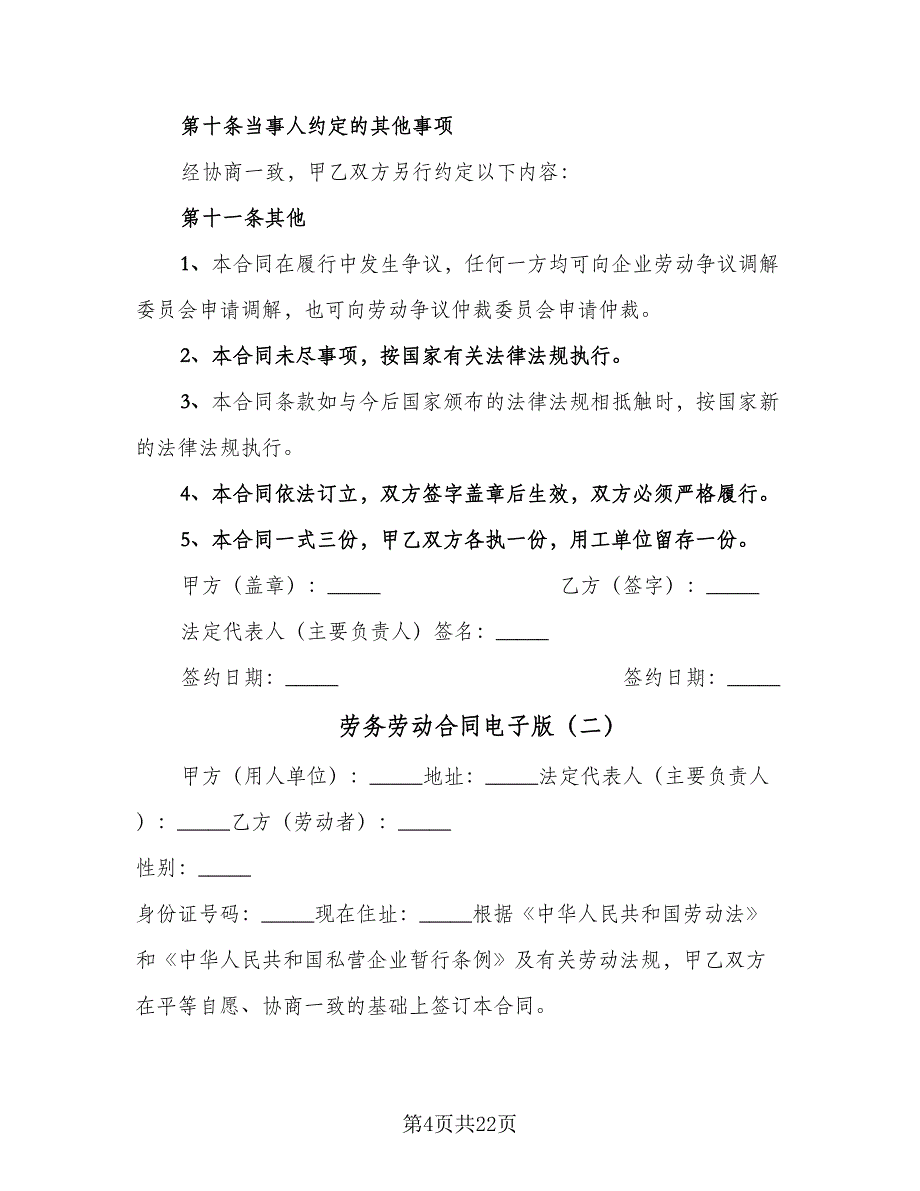 第十条当事人约定的其他事项
经协商一致，甲乙双方另行约定以下内容：
第十一条其他
1、本合同在履行中发生争议，任何一方均可向企业劳动争议调解
委员会申请调解，也可向劳动争议仲裁委员会申请仲裁。
2、本合同未尽事项，按国家有关法律法规执行。
3、本合同条款如与今后国家颁布的法律法规相抵触时，按国家新
的法律法规执行。
4、本合同依法订立，双方签字盖章后生效，双方必须严格履行。
5、本合同一式三份，甲乙双方各执一份，用工单位留存一份。
甲方（盖章）：_____ 乙方（签字）：_____
法定代表人（主要负责人）签名：_____
签约日期：_____ 签约日期：_____
劳务劳动合同电子版（二）
甲方（用人单位）：_____地址：_____法定代表人（主要负责人
）：_____乙方（劳动者）：_____
性别：_____
身份证号码：_____现在住址：_____根据《中华人民共和国劳动法》
和《中华人民共和国私营企业暂行条例》及有关劳动法规，甲乙双方
在平等自愿、协商一致的基础上签订本合同。
第4页共22页